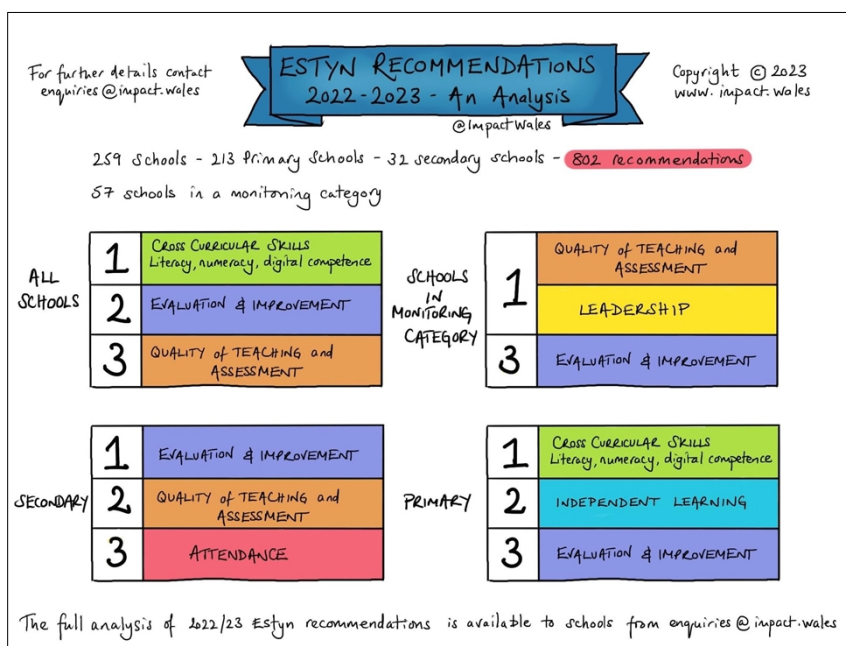 For further details contact
enquiries@impact.wales
ESTYN RECOMMENDATIONS
2022-2023 - An Analysis
@ImpactWales
Copyright © 2023
www.impact.wales
259 schools - 213 Primary Schools - 32 secondary schools - 802 recommendations
57 schools in a monitoring category
ALL
SCHOOLS
1
CROSS CURRICULAR SKILLS
Literacy, numeracy, digital competence
2
EVALUATION & IMPROVEMENT
3
QUALITY of TEACHING and
ASSESSMENT
SCHOOLS
IN
MONITORING
CATEGORY
1
QUALITY of TEACHING and
ASSESSMENT
LEADERSHIP
3
EVALUATION & IMPROVEMENT
SECONDARY
1
EVALUATION & IMPROVEMENT
2
QUALITY of TEACHING and
ASSESSMENT
3
ATTENDANCE
PRIMARY
1
CROSS CURRICULAR SKILLS
Literacy, numeracy, digital competence
2
INDEPENDENT LEARNING
3
EVALUATION & IMPROVEMENT
The full analysis of 2022/23 Estyn recommendations is available to schools from enquiries@impact.wales